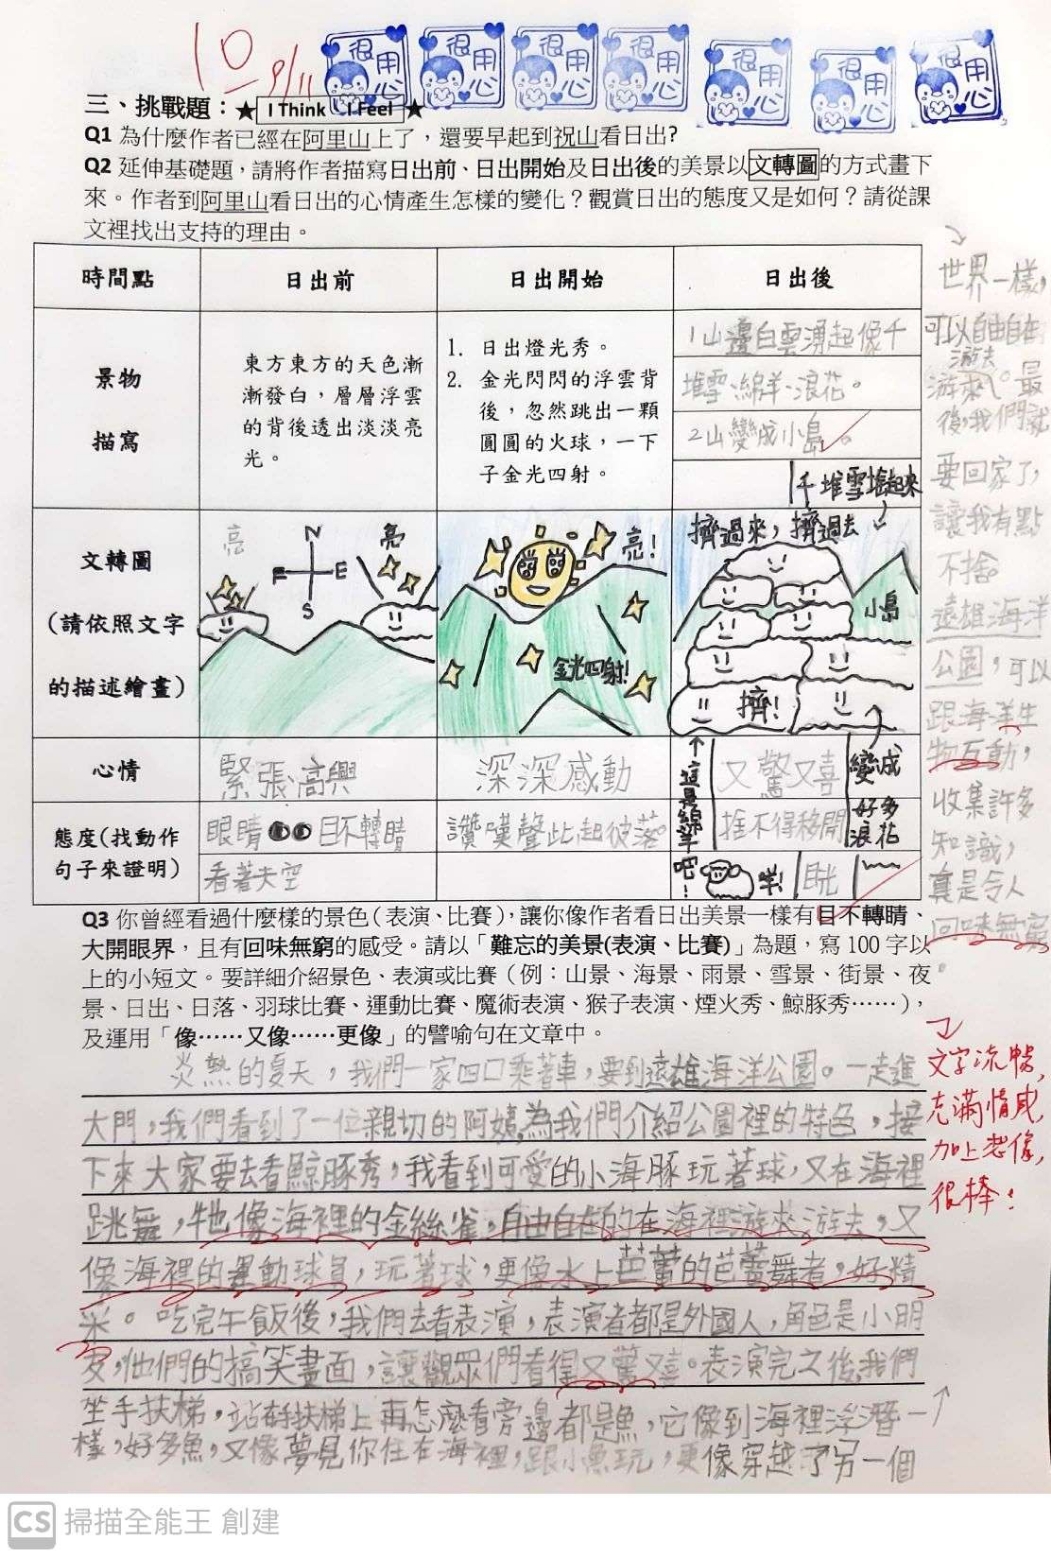 10 9/11
很用心 很用心 很用心 很用心 很用心 很用心 很用心
三、挑戰題：★ I Think I Feel ★
Q1 為什麼作者已經在阿里山上了，還要早起到祝山看日出?
Q2 延伸基礎題，請將作者描寫日出前、日出開始及日出後的美景以文轉圖的方式畫下
來。作者到阿里山看日出的心情產生怎樣的變化？觀賞日出的態度又是如何？請從課
文裡找出支持的理由。
時間點 日出前 日出開始 日出後
景物
描寫
東方東方的天色漸
漸發白，層層浮雲
的背後透出淡淡亮
光。
1. 日出燈光秀。
2. 金光閃閃的浮雲背
後，忽然跳出一顆
圓圓的火球，一下
子金光四射。
1山邊白雲湧起像千
堆雪、綿羊、浪花。
2山變成小島。
千堆雪堆起來
文轉圖
(請依照文字
的描述繪畫)
亮
N
E
S
亮
亮!
金光四射!
擠過來，擠過去
小島
擠!
心情 緊張高興 深深感動 又驚又喜
這是綿羊吧!
變成好多浪花
態度(找動作
句子來證明)
眼睛 目不轉睛
看著天空
讚嘆聲此起彼落
捨不得移開
目光
咩!
Q3 你曾經看過什麼樣的景色(表演、比賽)，讓你像作者看日出美景一樣有目不轉睛、
大開眼界，且有回味無窮的感受。請以「難忘的美景(表演、比賽)」為題，寫 100 字以
上的小短文。要詳細介紹景色、表演或比賽（例：山景、海景、雨景、雪景、街景、夜
景、日出、日落、羽球比賽、運動比賽、魔術表演、猴子表演、煙火秀、鯨豚秀……），
及運用「像……又像……更像」的譬喻句在文章中。
炎熱的夏天，我們一家四口乘著車，要到遠雄海洋公園。一走進
大門，我們看到了一位親切的阿姨為我們介紹公園裡的特色，接
下來大家要去看鯨豚秀，我看到可愛的小海豚玩著球，又在海裡
跳舞，牠像海裡的金絲雀，自由自在的在海裡游來游去，又
像海裡的運動球員，玩著球，更像水上芭蕾的芭蕾舞者，好精
采。吃完午飯後，我們去看表演，表演者都是外國人，角色是小朋
友，他們的搞笑畫面，讓觀眾們看得又驚又喜。表演完之後，我們
坐手扶梯，站在手扶梯上再怎麼看旁邊都是魚，它像到海裡浮潛一
樣，好多魚，又像夢見你住在海裡，跟小魚玩，更像穿越了另一個
世界一樣，
可以自由自在
游來游去。最
後，我們就
要回家了，
讓我有點
不捨。
遠雄海洋
公園，可以
跟海洋生
物互動，
收集許多
知識，
真是令人
回味無窮
。
文字流暢，
充滿情感，
加上想像，
很棒！
CS 掃描全能王 創建